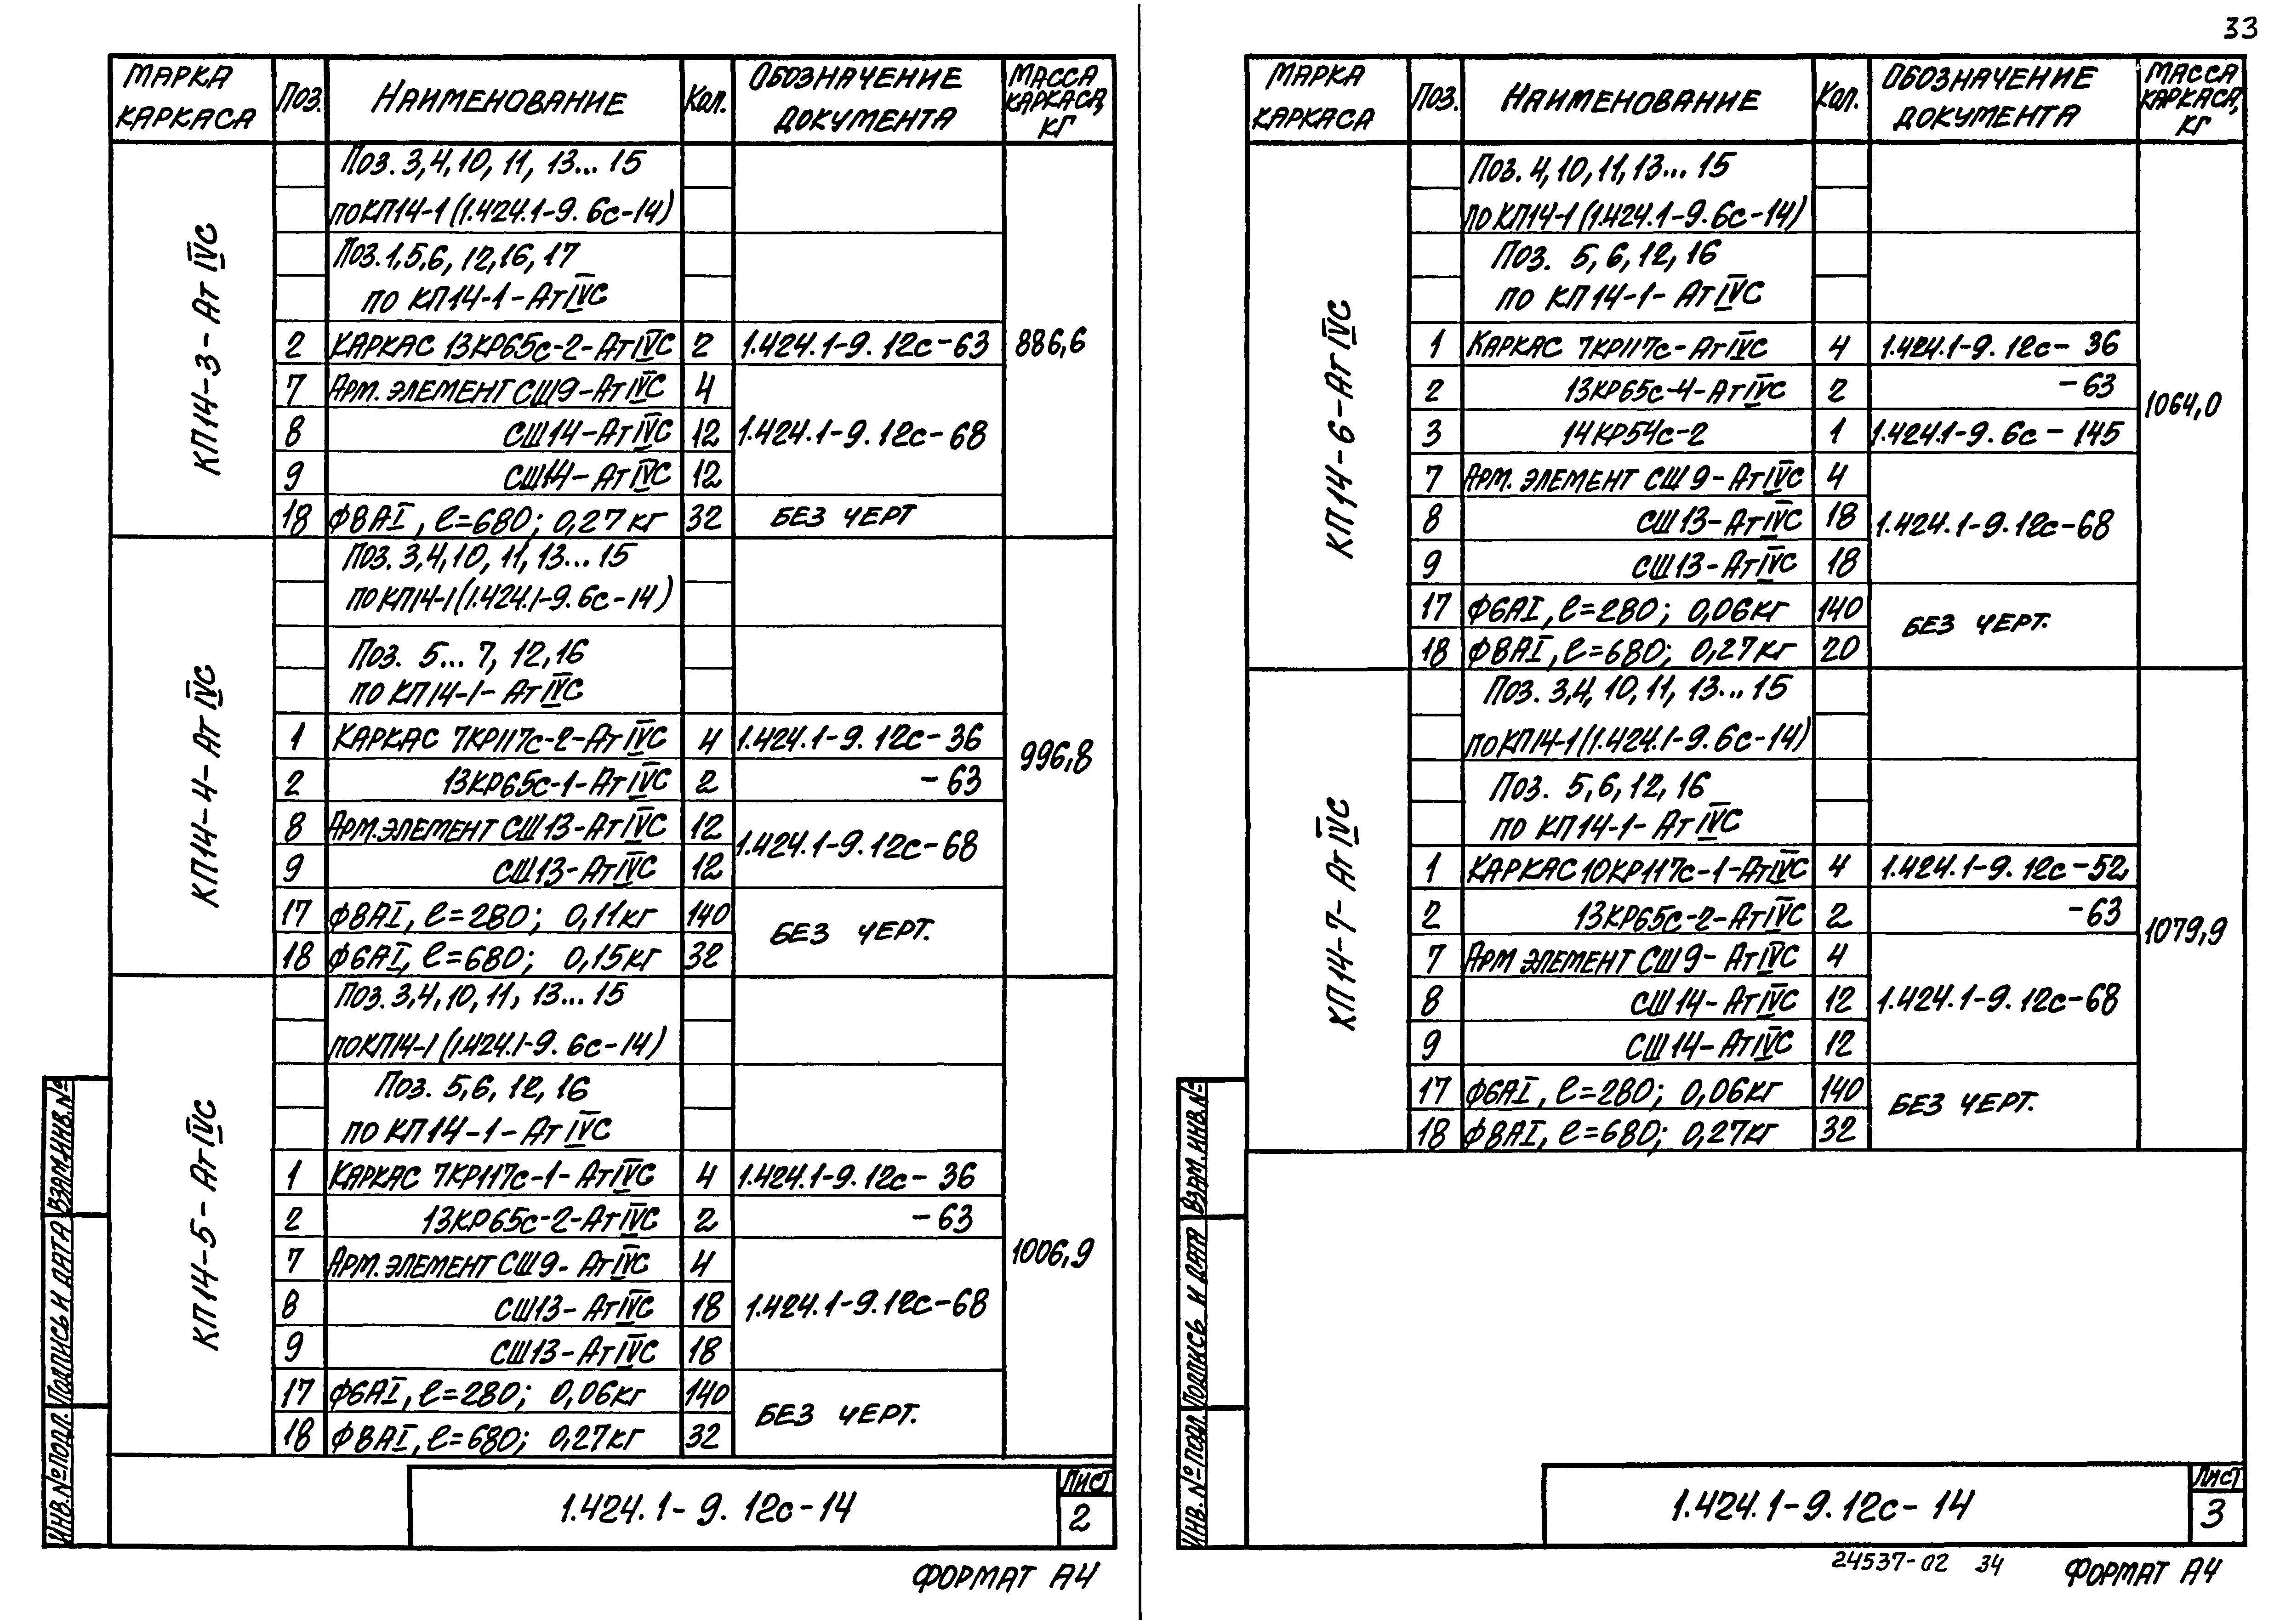 33
МАРКА КАРКАСА Поз. НАИМЕНОВАНИЕ Кол. ОБОЗНАЧЕНИЕ ДОКУМЕНТА МАССА КАРКАСА, КГ
КП14-3-АтIVС
Поз. 3,4,10, 11, 13... 15
по КП14-1 (1.424.1-9. 6с-14)
Поз. 1,5,6, 12,16, 17
по КП14-1-АтIVС
2 КАРКАС 13КР65с-2-АтIVС 2 1.424.1-9. 12с-63 886,6
7 АРМ. ЭЛЕМЕНТ СШ9-АтIVС 4
8 СШ14-АтIVС 12 1.424.1-9. 12с-68
9 СШ14-АтIVС 12
18 Ф8АI, ℓ=680; 0,27кг 32 БЕЗ ЧЕРТ
КП14-4-АтIVС
Поз. 3,4,10, 11, 13... 15
по КП14-1 (1.424.1-9. 6с-14)
Поз. 5... 7, 12,16
по КП14-1-АтIVС
1 КАРКАС 7КР117с-2-АтIVС 4 1.424.1-9. 12с-36 996,8
2 13КР65с-1-АтIVС 2 -63
8 АРМ. ЭЛЕМЕНТ СШ13-АтIVС 12 1.424.1-9. 12с-68
9 СШ13-АтIVС 12
17 Ф8АI, ℓ=280; 0,11кг 140 БЕЗ ЧЕРТ.
18 Ф6АI, ℓ=680; 0,15кг 32
КП14-5-АтIVС
Поз. 3,4,10, 11, 13... 15
по КП14-1 (1.424.1-9. 6с-14)
Поз. 5,6, 12, 16
по КП14-1-АтIVС
1 КАРКАС 7КР117с-1-АтIVС 4 1.424.1-9. 12с-36
2 13КР65с-2-АтIVС 2 -63 1006,9
7 АРМ. ЭЛЕМЕНТ СШ9-АтIVС 4
8 СШ13-АтIVС 18 1.424.1-9. 12с-68
9 СШ13-АтIVС 18
17 Ф6АI, ℓ=280; 0,06кг 140 БЕЗ ЧЕРТ.
18 Ф8АI, ℓ=680; 0,27кг 32
ИНВ. № ПОДЛ. ПОДПИСЬ И ДАТА ВЗАМ. ИНВ. №
1.424.1-9. 12с-14
Лист
2
ФОРМАТ А4
МАРКА КАРКАСА Поз. НАИМЕНОВАНИЕ Кол. ОБОЗНАЧЕНИЕ ДОКУМЕНТА МАССА КАРКАСА, КГ
КП14-6-АтIVС
Поз. 4,10,11,13... 15
по КП14-1 (1.424.1-9. 6с-14)
Поз. 5, 6, 12, 16
по КП14-1-АтIVС
1 КАРКАС 7КР117с-АтIVС 4 1.424.1-9. 12с-36
2 13КР65с-4-АтIVС 2 -63 1064,0
3 14КР54с-2 1 1.424.1-9. 6с-145
7 АРМ. ЭЛЕМЕНТ СШ9-АтIVС 4
8 СШ13-АтIVС 18 1.424.1-9. 12с-68
9 СШ13-АтIVС 18
17 Ф6АI, ℓ=280; 0,06кг 140 БЕЗ ЧЕРТ.
18 Ф8АI, ℓ=680; 0,27кг 20
КП14-7-АтIVС
Поз. 3,4, 10,11, 13... 15
по КП14-1 (1.424.1-9. 6с-14)
Поз. 5,6, 12, 16
по КП14-1-АтIVС
1 КАРКАС 10КР117с-1-АтIVС 4 1.424.1-9. 12с-52
2 13КР65с-2-АтIVС 2 -63 1079,9
7 АРМ ЭЛЕМЕНТ СШ9-АтIVС 4
8 СШ14-АтIVС 12 1.424.1-9. 12с-68
9 СШ14-АтIVС 12
17 Ф6АI, ℓ=280; 0,06кг 140 БЕЗ ЧЕРТ.
18 Ф8АI, ℓ=680; 0,27кг 32
ИНВ. № ПОДЛ. ПОДПИСЬ И ДАТА ВЗАМ. ИНВ. №
1.424.1-9. 12с-14
Лист
3
24537-02 34 ФОРМАТ А4